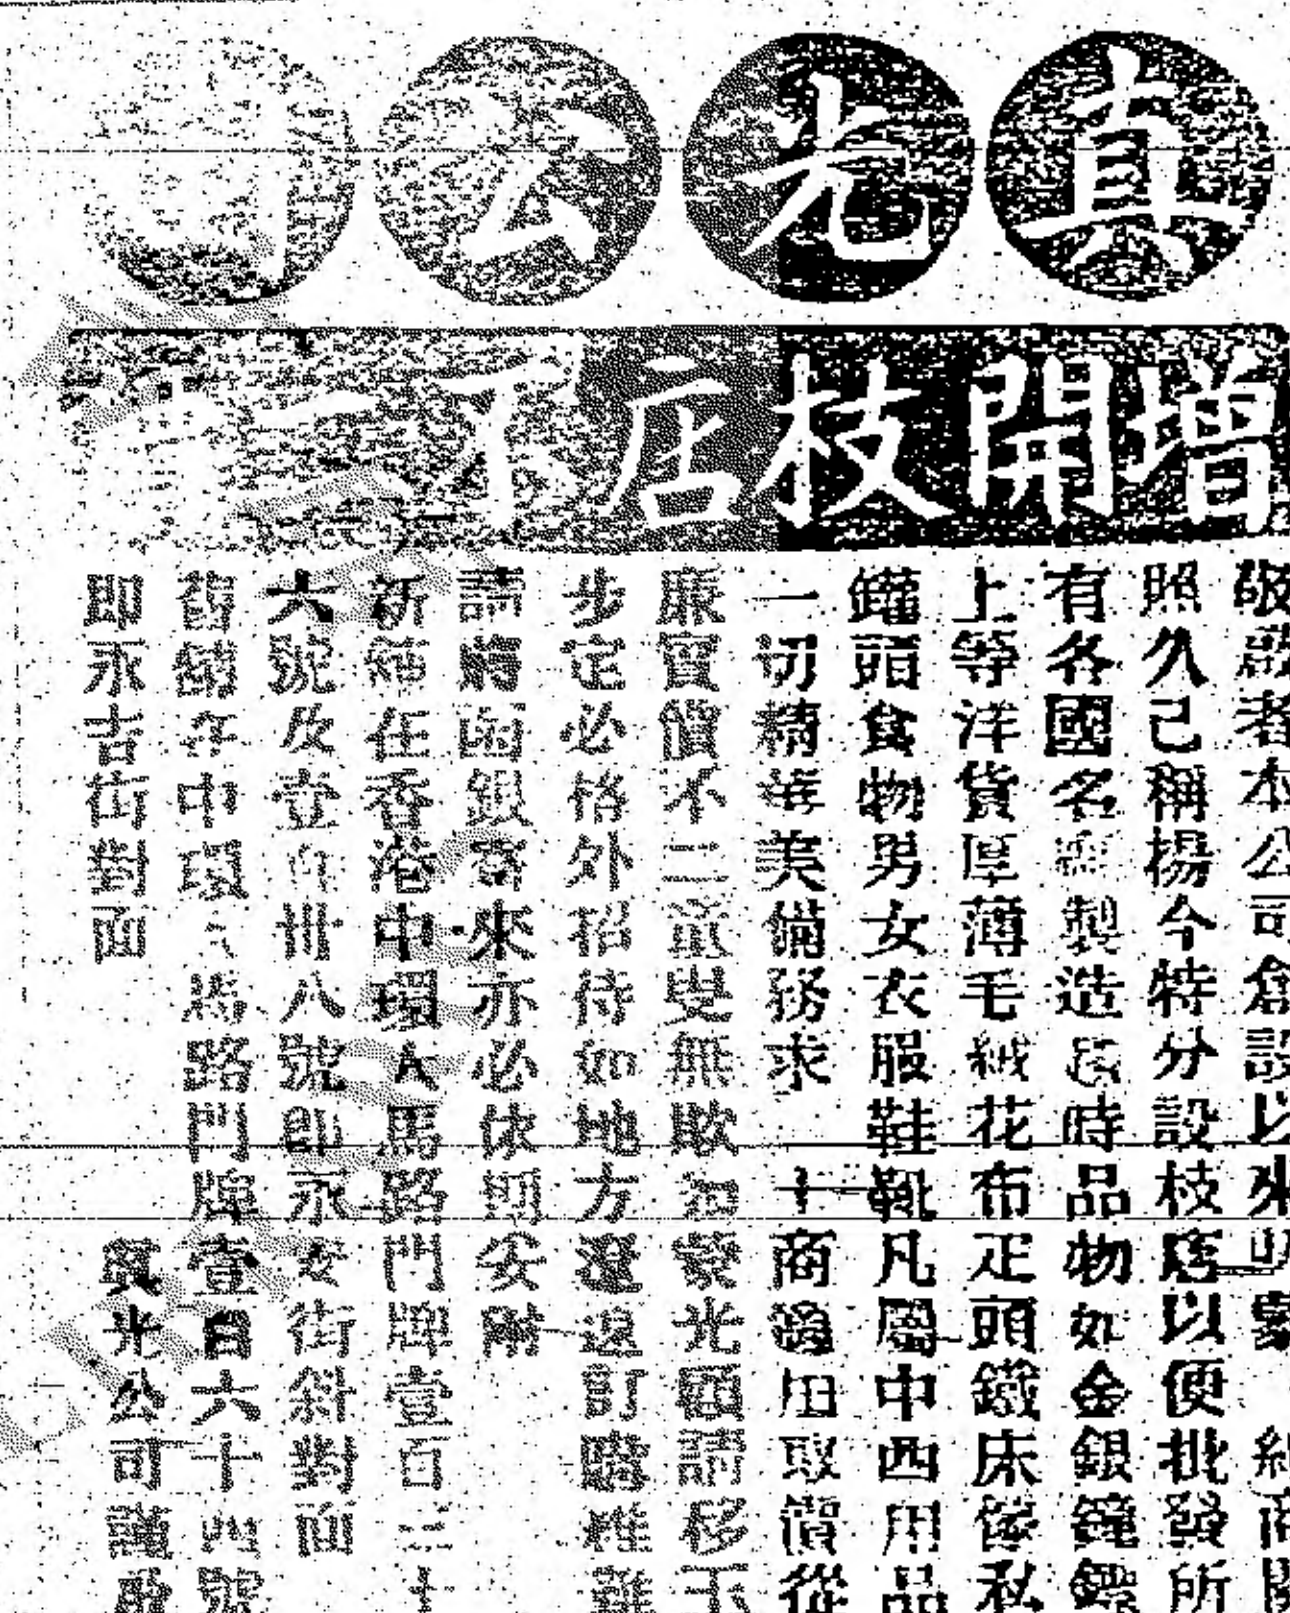 真光公司
增開枝店不二價
敬啟者本公司創設以來叨蒙 紳商
照久己稱揚今特分設枝店以便批發所
有各國名廠製造及時品物如金銀鐘鏢
上等洋貨厚薄毛絨花布疋頭鐵床傢私
罐頭食物男女衣服鞋靴凡屬中西用品
一切精華美備務求 士商適用取價從
廉實價不二童叟無欺如蒙光顧請移玉
步定必格外招待如地方遼遠訂購維難
請將函銀寄來亦必依期安附
新枝在香港中環大馬路門牌壹百三十
六號及壹百卅八號即永安街斜對面
舊舖在中環大馬路門牌壹百六十四號
即永吉街對面
真光公司謹啟